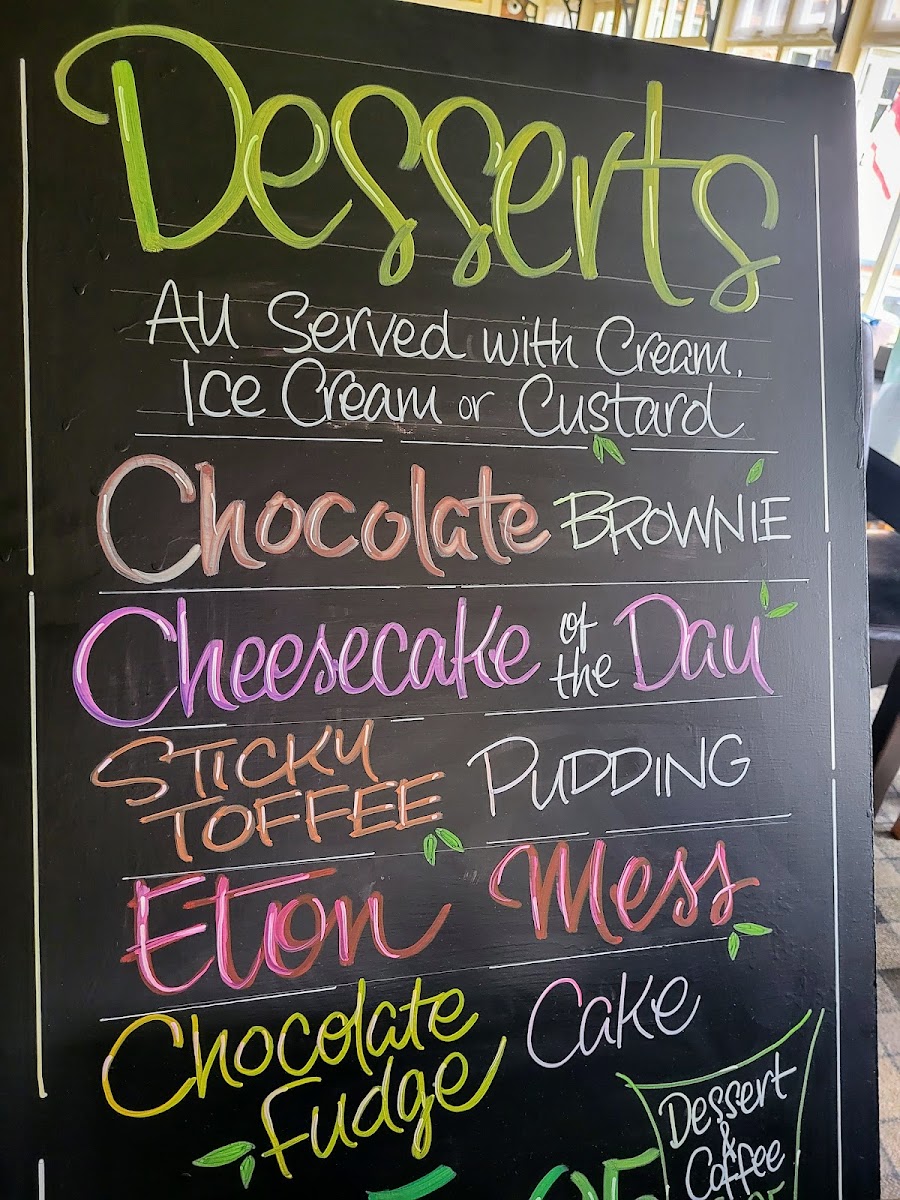 Desserts
All Served with Cream,
Ice Cream or Custard
Chocolate BROWNIE
Cheesecake of the Day
STICKY TOFFEE PUDDING
Eton Mess
Chocolate Fudge Cake
Dessert
&
Coffee